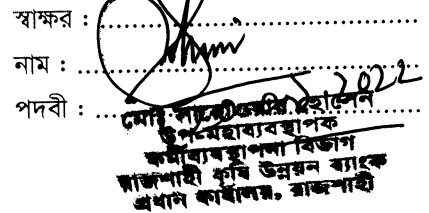 স্বাক্ষর :
নাম :
2022
পদবী :
মোঃ হোসেন
উপ-মহাব্যবস্থাপক
কর্মীব্যবস্থাপনা বিভাগ
রাজশাহী কৃষি উন্নয়ন ব্যাংক
প্রধান কার্যালয়, রাজশাহী